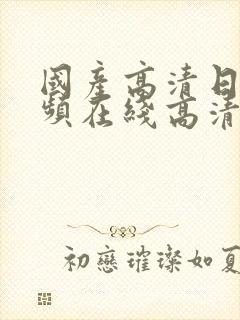 國產高清日
頻在綫高清
初戀璀璨如夏